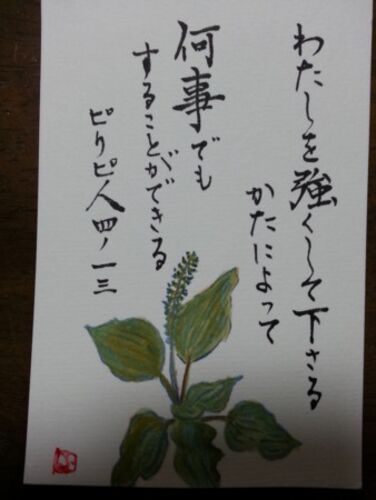 わたしを強くして下さる
かたによって
何事でも
することができる
ピリピ人四ノ一三